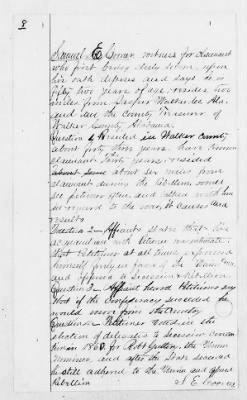 8
Samuel E Cowan witness for claimant
who first being duly sworn upon
his oath deposes and says is
fifty two years of age, resides two
miles from Jasper Walker Co. Ala.
and am the County Treasurer of
Walker County Alabama.
Question 1 Resided in Walker County
about forty three years, have known
claimant thirty years, resided
about six miles from
claimant during the rebellion, would
see him often and talked with him
in regard to the war, its causes and
results
Question 2 Affiant states that he
at all times expressed
himself in favor of the Union
and opposed to Secession & Rebellion
Question 3 Affiant heard Petitioner say
that if the Confederacy succeeded he
would move from the Country
Question Petitioner voted in the
election of delegates to secession conven
tion in 1860. for Robt Guttery, the Union
nominee, and after the State seceded
he still adhered to the Union and opposed
Rebellion
S. E. Cowan